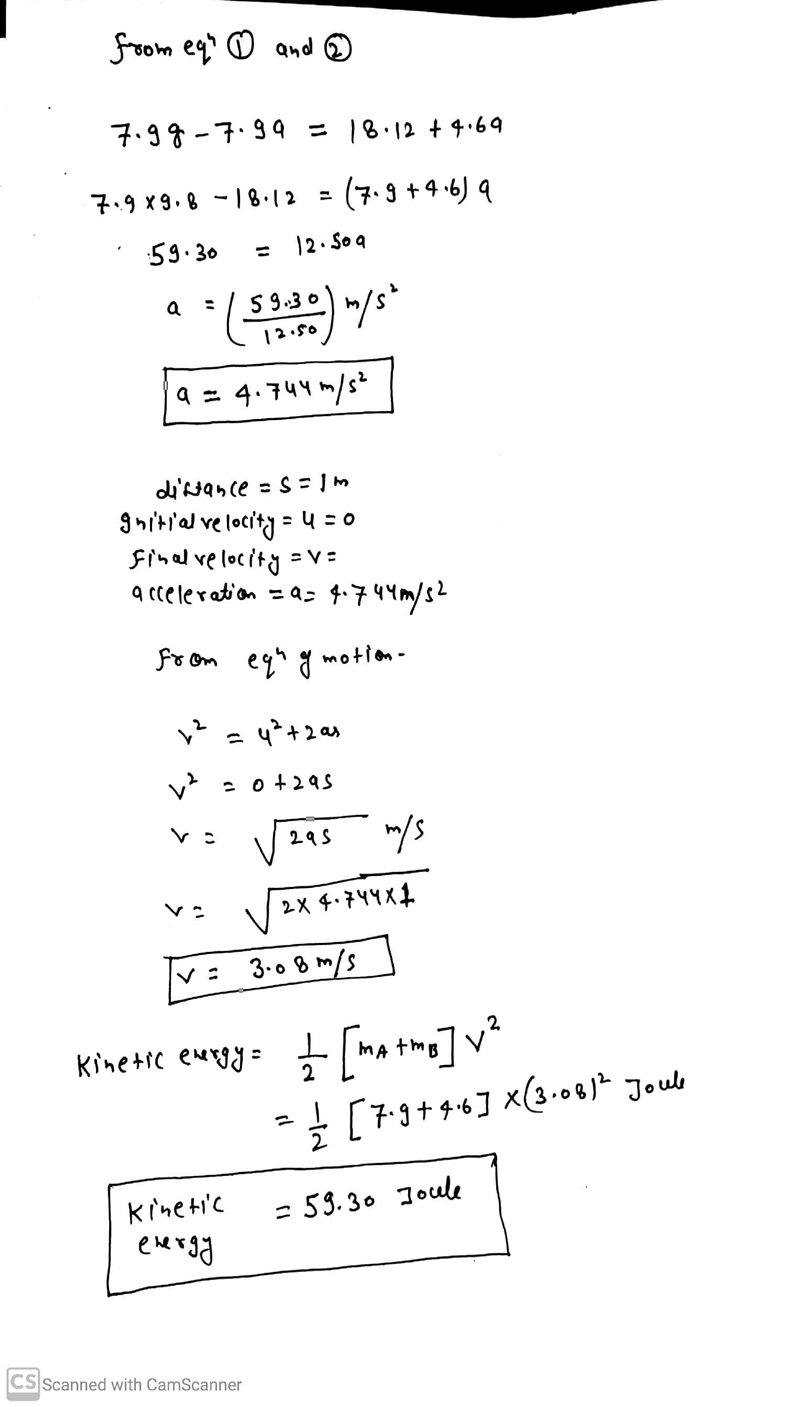 from eqn ① and ②
7.9g - 7.9a = 18.12 + 4.6a
7.9 x 9.8 - 18.12 = (7.9 + 4.6) a
59.30 = 12.50a
a = (59.30/12.50) m/s²
a = 4.744 m/s²
distance = s = 1m
Initial velocity = u = 0
final velocity = v =
acceleration = a = 4.744m/s²
from eqn of motion -
v² = u² + 2as
v² = 0 + 2as
v = √2as m/s
v = √2 x 4.744 x 1
v = 3.08 m/s
Kinetic energy = 1/2 [mA + mB] v²
= 1/2 [7.9 + 4.6] x (3.08)² Joule
Kinetic energy = 59.30 Joule
CS Scanned with CamScanner